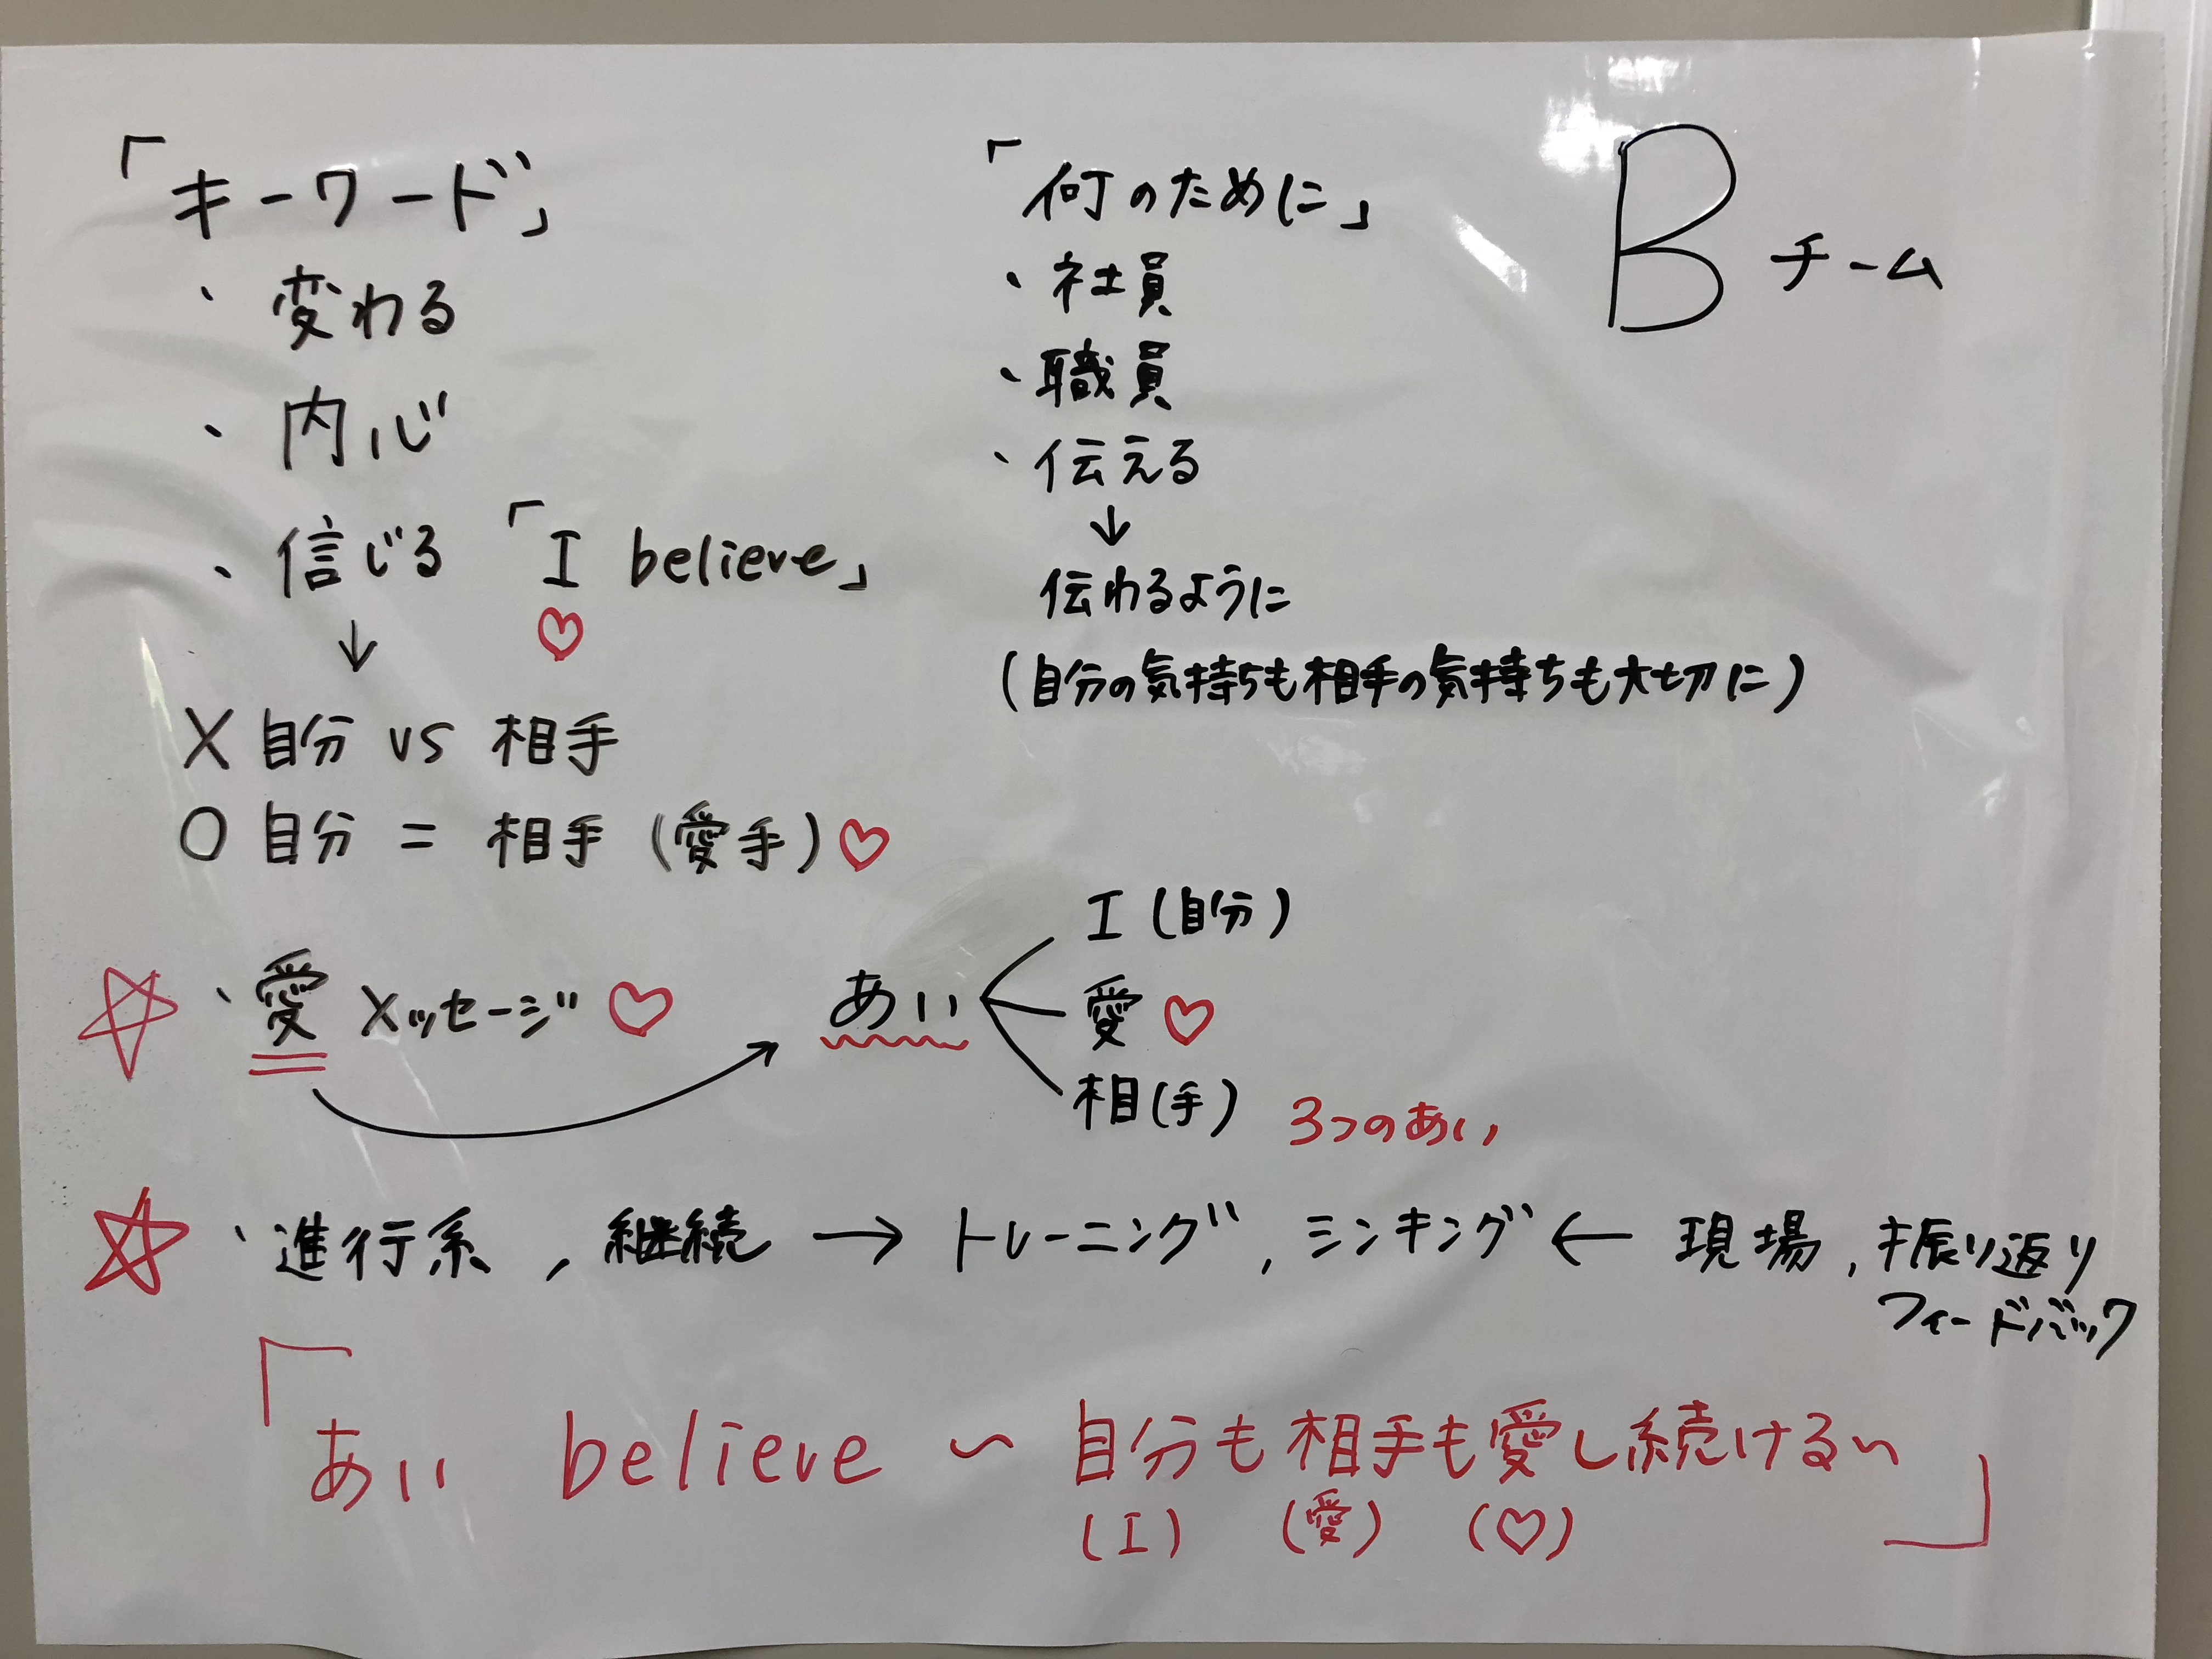 「キーワード」
・変わる
・内心
・信じる 「I believe」
↓ ♡
× 自分 vs 相手
○ 自分 = 相手 (愛手) ♡
「何のために」
・社員
・職員
・伝える
↓
伝わるように
(自分の気持ちも相手の気持ちも大切に)
Bチーム
☆・愛メッセージ♡
あい
I (自分)
愛 ♡
相(手) 3つのあい
☆・進行系, 継続 → トレーニング, シンキング ← 現場, 振り返り
フィードバック
「あい believe ~ 自分も相手も愛し続ける~」
(I) (愛) (♡)